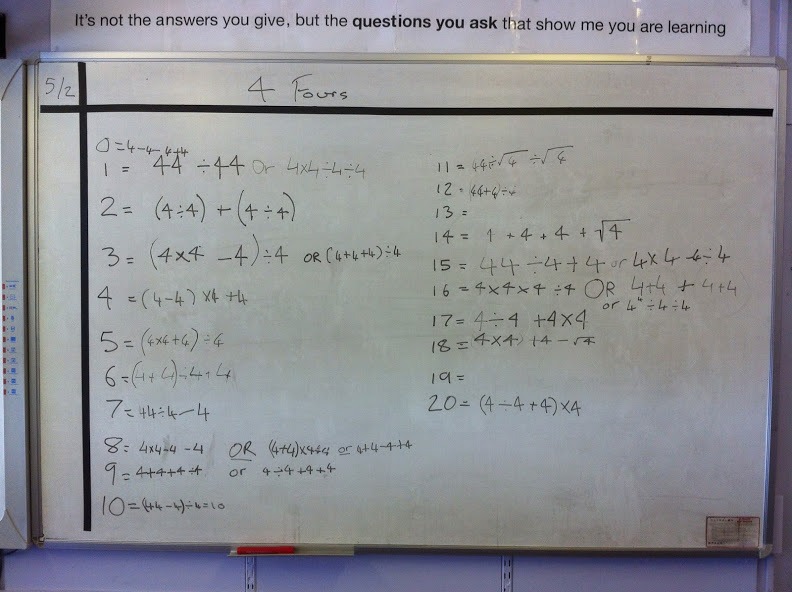 It's not the answers you give, but the questions you ask that show me you are learning
5/2
4 Fours
0 = 4-4-4+4
1 = 44 ÷ 44 Or 4x4÷4÷4
2 = (4÷4) + (4÷4)
3 = (4x4 - 4) ÷ 4 OR (4+4+4)÷4
4 = (4-4) x4 +4
5 = (4x4+4) ÷ 4
6 = (4+4)÷4+4
7 = 44÷4-4
8 = 4x4-4-4 OR (4+4)x4÷4 or 4+4-4+4
9 = 4+4+4÷4 or 4÷4+4+4
10 = (44-4)÷4=10
11 = 44÷√4 ÷√4
12 = (44+4)÷4
13 =
14 = 4 + 4 + 4 + √4
15 = 44 ÷4+4 or 4x4-4÷4
16 = 4x4x4÷4 OR 4+4+4+4
or 4⁴÷4÷4
17 = 4÷4 +4x4
18 = 4x4) +4-√4
19 =
20 = (4÷4+4)x4